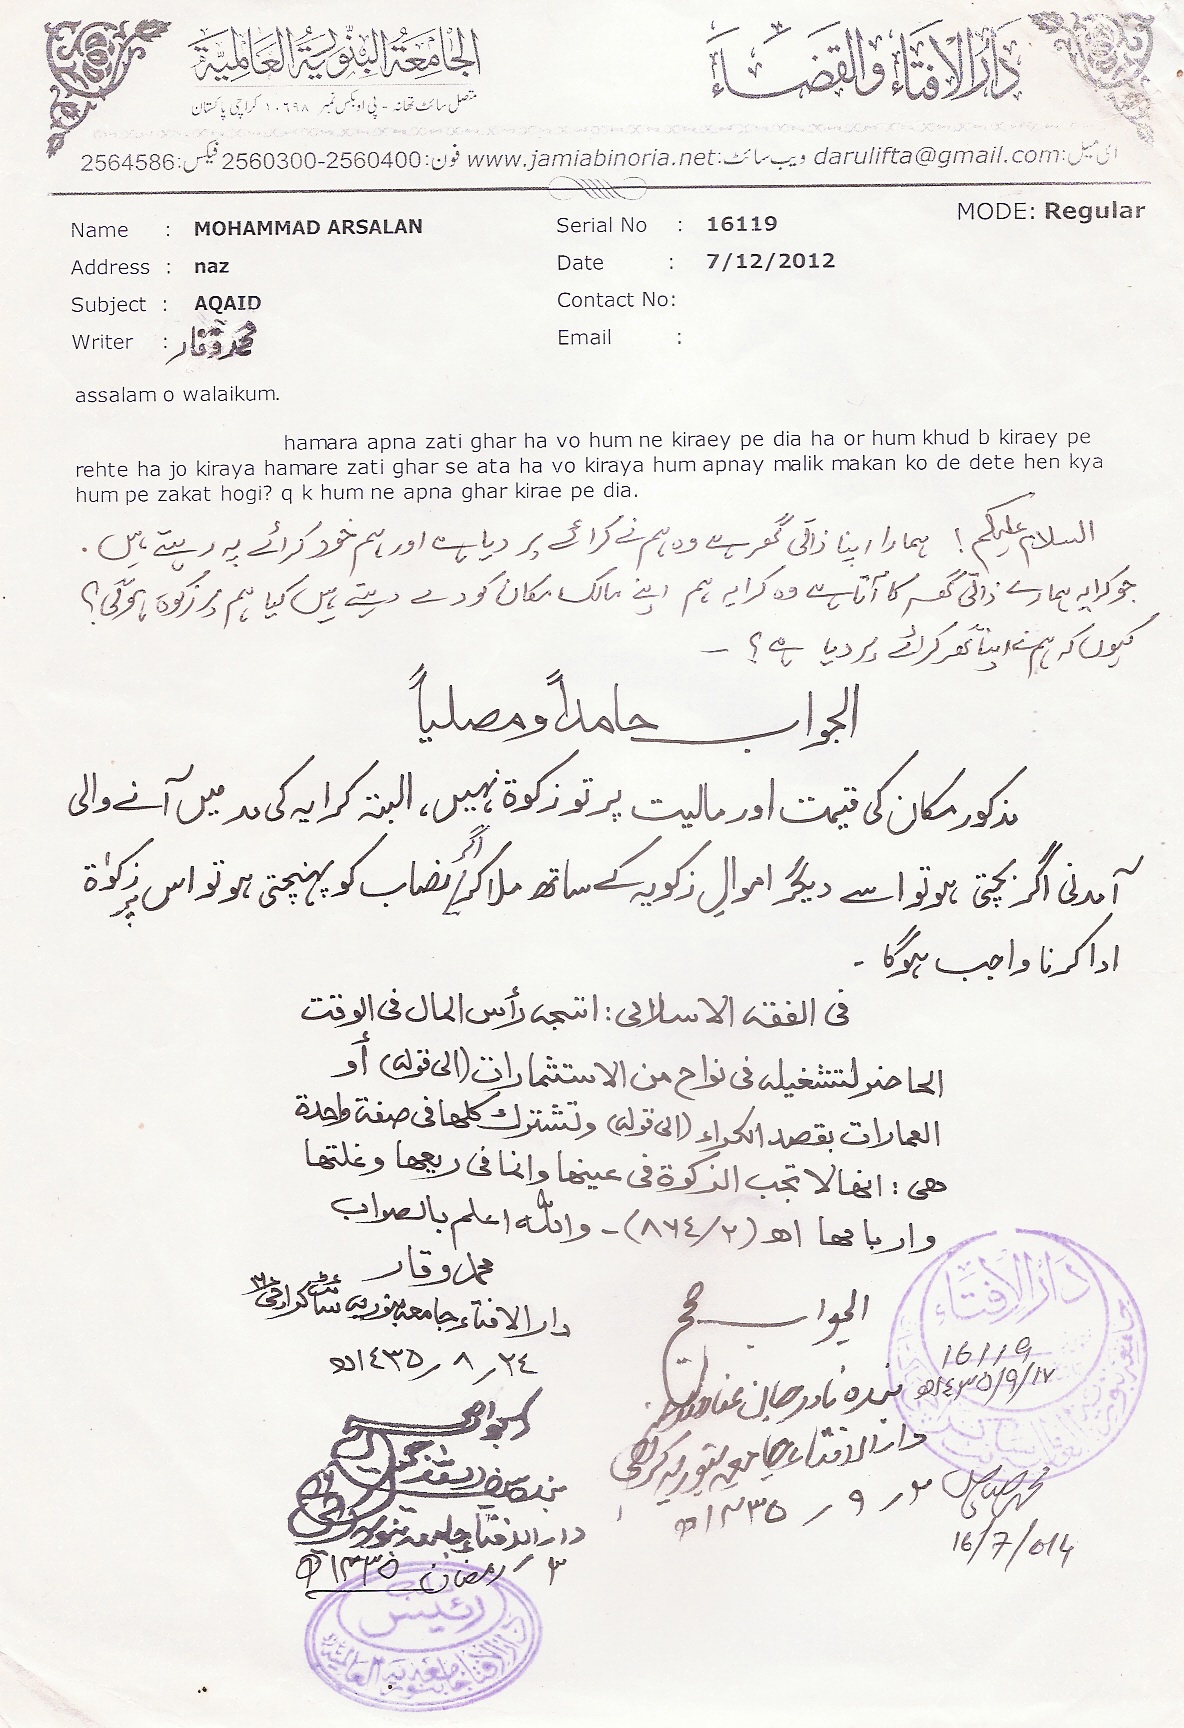 دَارُالافتَاء وَالقضَاء
الجَامعَة البَنُّورِيَّة العَالمِيَّة
متصل سائٹ تھانہ - پی او بکس نمبر ۱۰۶۹۸ کراچی پاکستان
ای میل:darulifta@gmail.com ویب سائٹ:www.jamiabinoria.net فون:2560300-2560400 فیکس:2564586
MODE: Regular
Name : MOHAMMAD ARSALAN
Serial No : 16119
Address : naz
Date : 7/12/2012
Subject : AQAID
Contact No:
Writer : محمد وقار
Email :
assalam o walaikum.
hamara apna zati ghar ha vo hum ne kiraey pe dia ha or hum khud b kiraey pe
rehte ha jo kiraya hamare zati ghar se ata ha vo kiraya hum apnay malik makan ko de dete hen kya
hum pe zakat hogi? q k hum ne apna ghar kirae pe dia.
السلام علیکم! ہمارا اپنا ذاتی گھر ہے وہ ہم نے کرائے پر دیا ہے اور ہم خود کرائے پہ رہتے ہیں.
جو کرایہ ہمارے ذاتی گھر کا آتا ہے وہ کرایہ ہم اپنے مالک مکان کو دے دیتے ہیں کیا ہم پر زکوٰۃ ہوگی؟
کیوں کہ ہم نے اپنا گھر کرائے پر دیا ہے؟ —
الجواب حامداً ومصلیاً
مذکور مکان کی قیمت اور مالیت پر تو زکوٰۃ نہیں، البتہ کرایہ کی مد میں آنے والی
آمدنی اگر بچتی ہو تو اسے دیگر اموالِ زکویہ کے ساتھ ملا کر اگر نصاب کو پہنچتی ہو تو اس پر زکوٰۃ
ادا کرنا واجب ہوگا -
فی الفقہ الاسلامی: اتجہ رأس المال فی الوقت
الحاضر لتشغیلہ فی نواح من الاستثمارات (الی قولہ) أو
العمارات بقصد الکراء (الی قولہ) وتشترک کلھا فی صفۃ واحدۃ
ھی: انھا لا تجب الزکوۃ فی عینھا وانما فی ریعھا وغلتھا
وارباحھا اھ (۸۶٤/۲) - واللہ اعلم بالصواب
محمد وقار
دار الافتاء جامعہ بنوریہ سائٹ کراچی
۲٤ / ۸ / ۱٤۳۵ھ
الجواب صحیح
بندہ نادر جان عفا اللہ عنہ
دار الافتاء جامعہ بنوریہ کراچی
۲ / ۹ / ۱۴۳۵ھ
دَارُالافتَاء
16119
۱۷/۹/۱٤۳۵ھ
16/7/014
الجواب صحیح
دار الافتاء جامعہ بنوریہ
۳ / رمضان ۱۴۳۵ھ
رئیس
دارالافتاء جامعہ بنوریہ العالمیہ